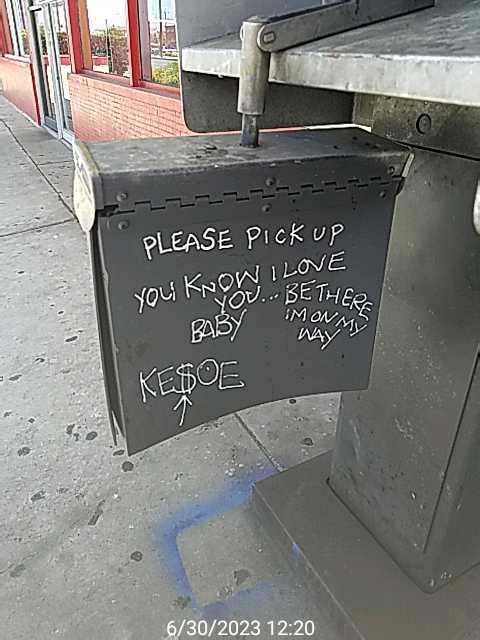 PLEASE PICK UP
YOU KNOW I LOVE
YOU... BE THERE
BABY I'M ON MY
WAY
KE$OE
6/30/2023 12:20